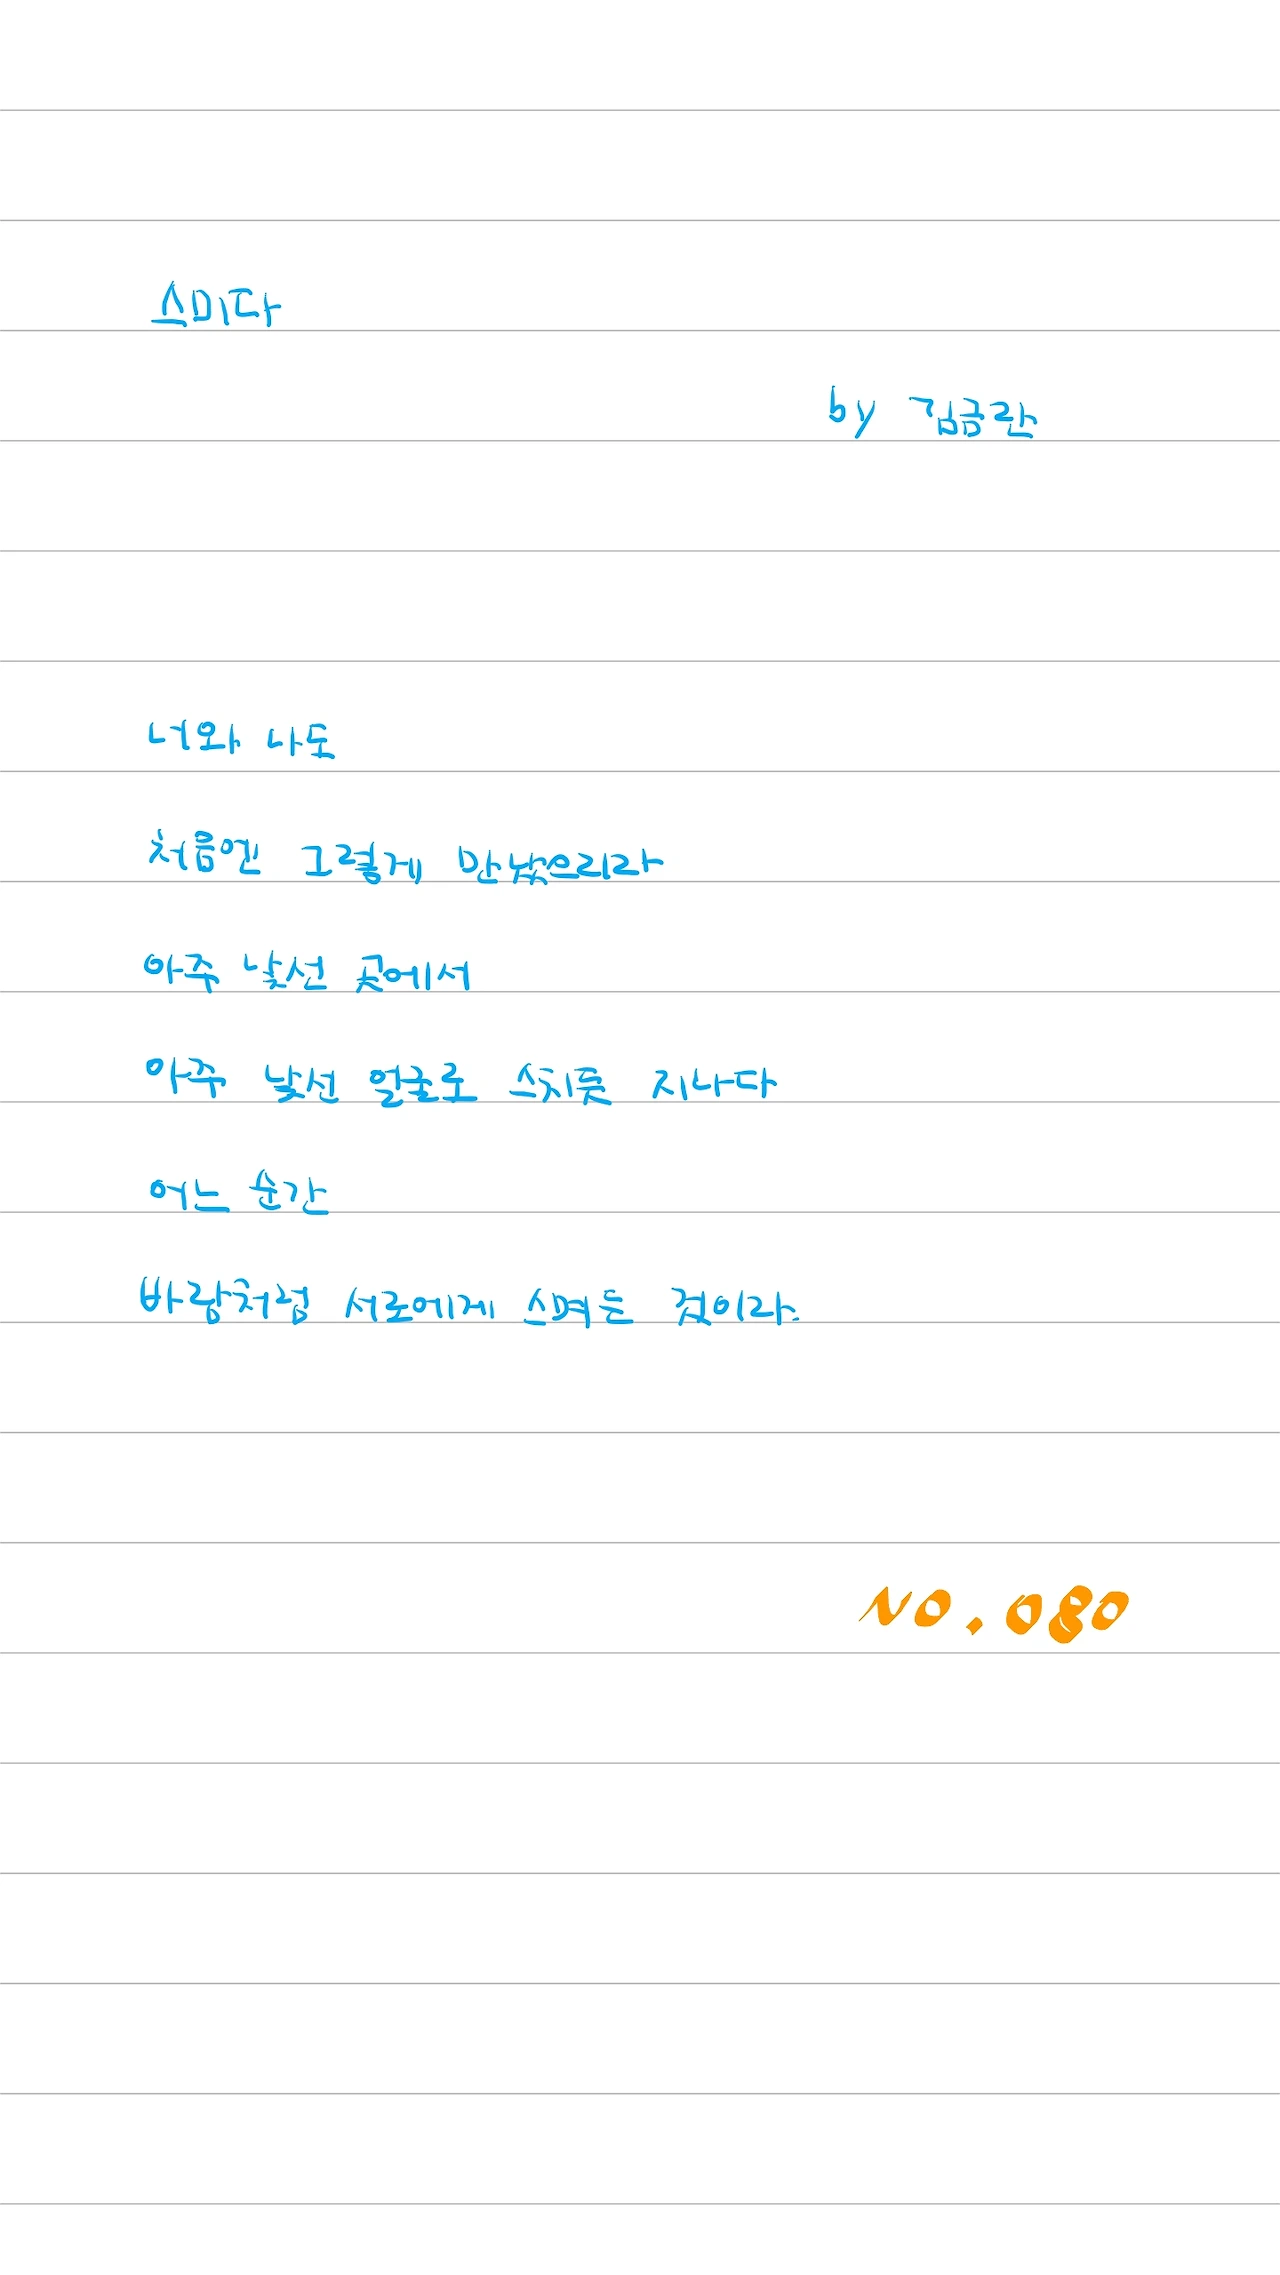 스미다
by 김금란
너와 나도
처음엔 그렇게 만났으리라
아주 낯선 곳에서
아주 낯선 얼굴로 스치듯 지나다
어느 순간
바람처럼 서로에게 스며든 것이라.
NO.080